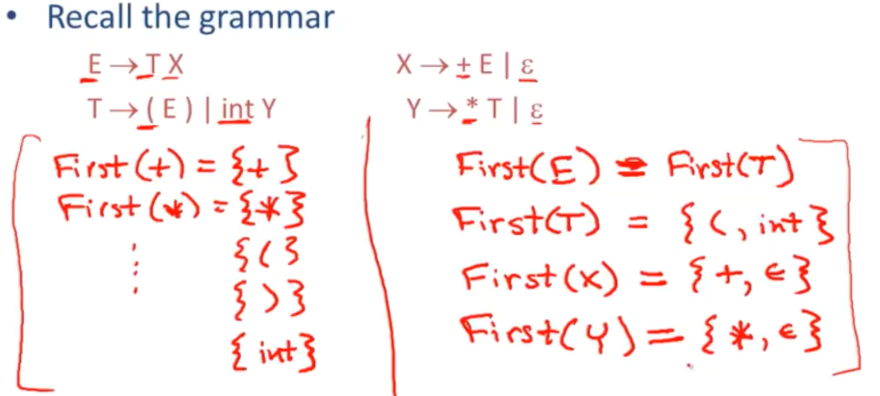 • Recall the grammar
E → T X
T → ( E ) | int Y
X → + E | ε
Y → * T | ε
First(+) = {+}
First(*) = {*}
⋮ {(}
{)}
{int}
First(E) = First(T)
First(T) = {(, int}
First(X) = {+, ε}
First(Y) = {*, ε}